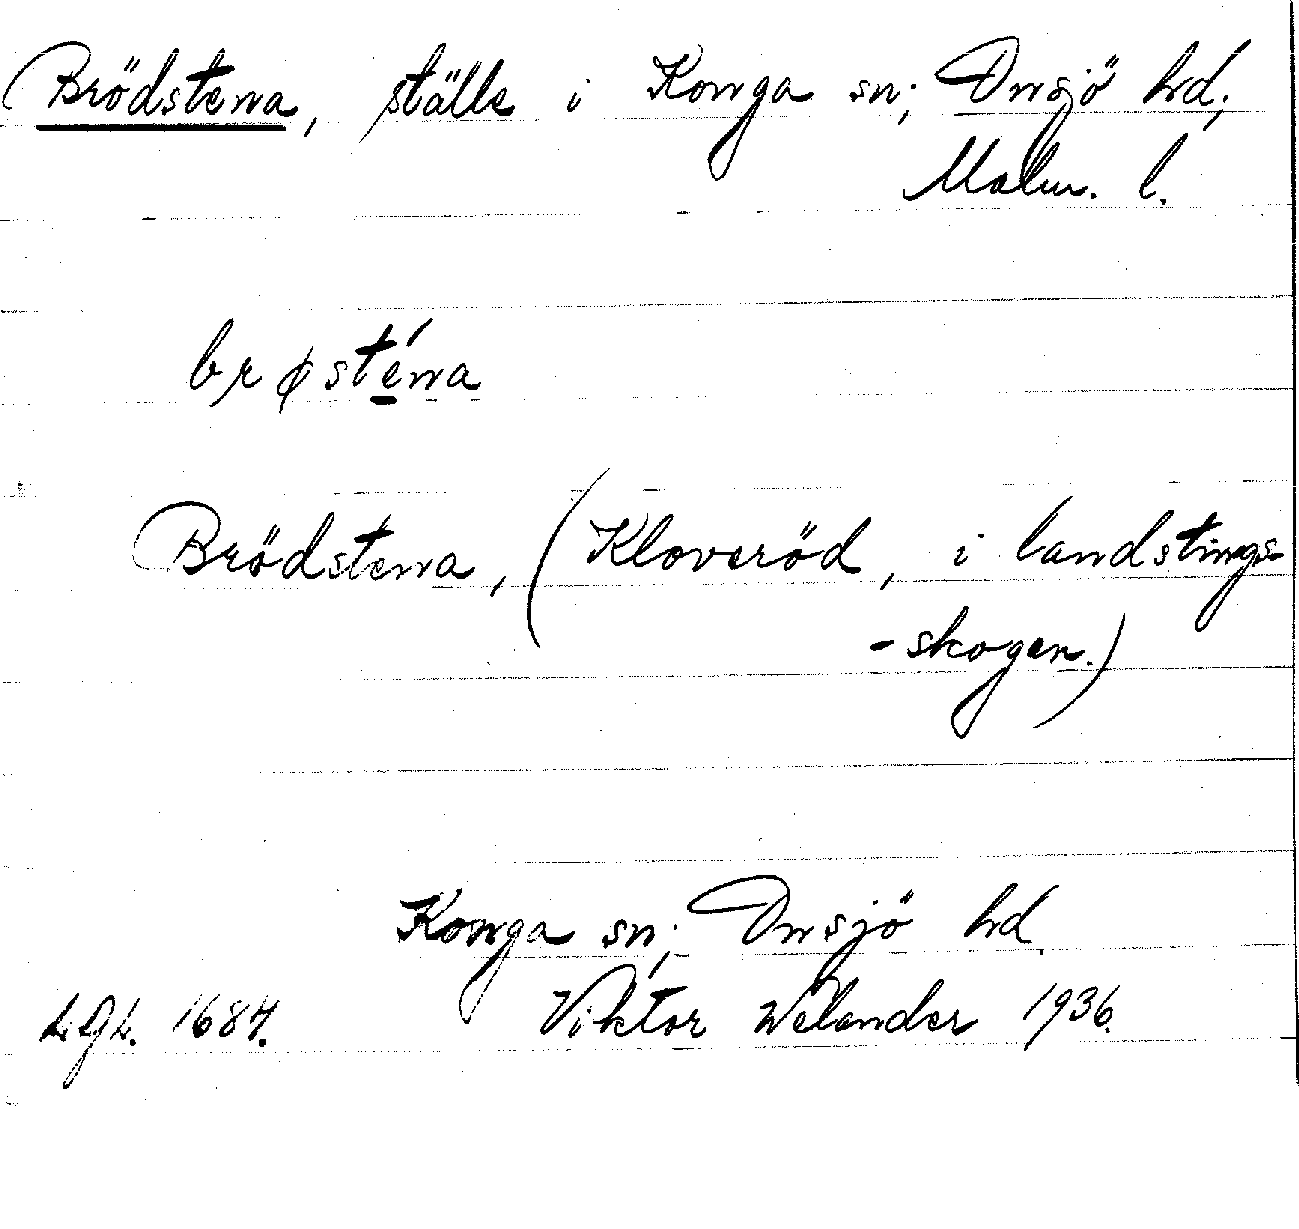 Brödstena, ställe i Konga sn; Onsjö hd;
Malm. l.
brøsténa
Brödstena, (Kloveröd, i landstings
-skogen.)
Konga sn; Onsjö hd
Viktor Welander 1936.
1684.